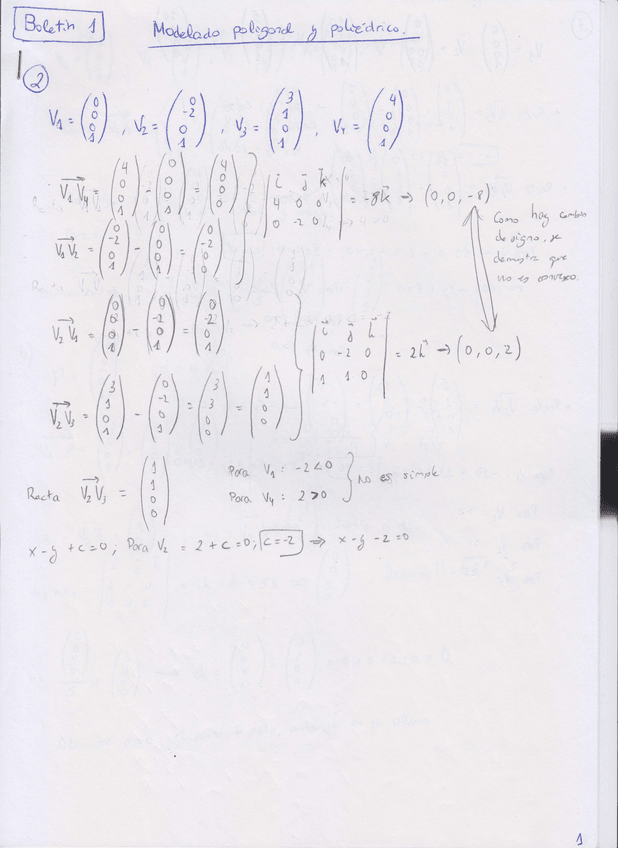 Boletín 1
Modelado poligonal y poliédrico.
2
V1 = (0 0 0 1), V2 = (0 -2 0 1), V3 = (3 1 0 1), V4 = (4 0 0 1)
V1V4 = (4 0 0 1) - (0 0 0 1) = (4 0 0 0) } | i j k 4 0 0 0 -2 0 | = -8k → (0, 0, -8)
V1V2 = (0 -2 0 1) - (0 0 0 1) = (0 -2 0 0)
Como hay cambio
de signo, se
demuestra que
no es convexo.
V2V1 = (0 0 0 1) - (0 -2 0 1) =
| i j k 0 -2 0 1 1 0 | = 2k → (0, 0, 2)
V2V3 = (3 1 0 1) - (0 -2 0 1) = (3 3 0 0) = (1 1 0 0)
Recta V2V3 = (1 1 0 0)
Para V1: -2 < 0
Para V4: 2 > 0 } No es simple
x - y + c = 0; Para V2 = 2 + c = 0; c = -2 ⇒ x - y - 2 = 0
1